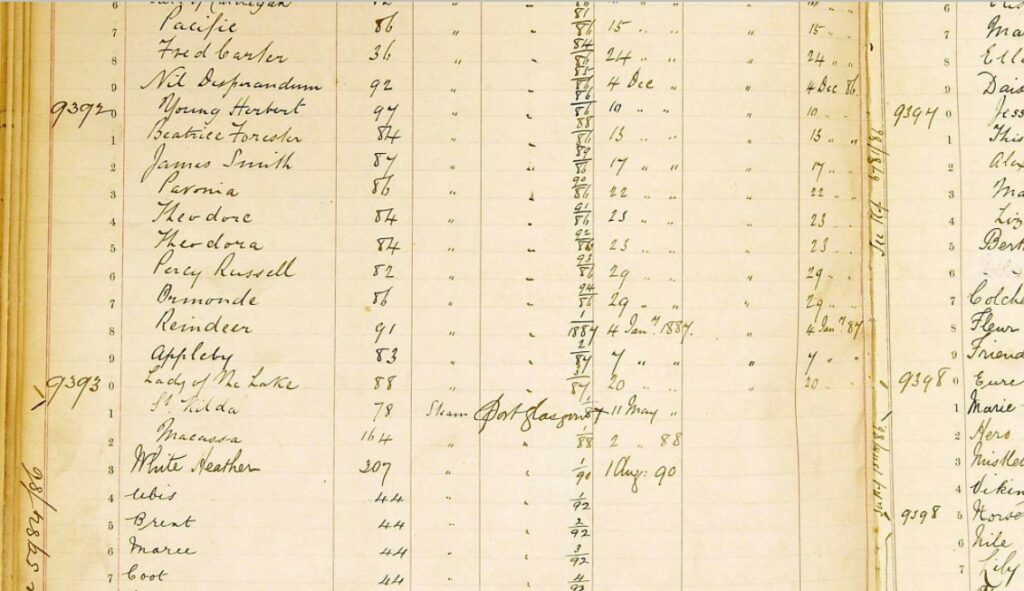 7 Pacific 86 " " 86 15 " " " 15 " "
8 Fred Carter 36 " " 84/86 24 " " " 24 " "
9 Nil Desperandum 92 " " 85/86 4 Dec " " 4 Dec 86.
9392 0 Young Herbert 97 " " 10 " " " 10 "
1 Beatrice Forester 84 " " 88/86 13 " " " 13 " "
2 James Smith 87 " " 89/86 17 " " " 17 "
3 Pavonia 86 " " 90/86 22 " " " 22 "
4 Theodore 84 " " 91/86 23 " " " 23 "
5 Theodora 84 " " 92/86 23 " " " 23 "
6 Percy Russell 82 " " 93/86 29 " " " 29 "
7 Ormonde 86 " " 94/86 29 " " " 29 "
8 Reindeer 91 " " 1/1887 4 Jany 1887. " 4 Jany 87
9 Appleby 83 " " 2/87 7 " " " 7 " "
9393 0 Lady of the Lake 88 " " 3/87 20 " " " 20 " "
1 St. Kilda 78 Steam Port Glasgow 11 May "
2 Macassa 164 " " 1/88 2 " 88
3 White Heather 207 " " 1/90 1 Aug: 90
4 44 " " 1/92
5 Brent 44 " " 2/92
6 Maree 44 " " 3/92
7 Coot 44 " " 4/92
5984/86
See Ref 6781/86
9397 0
1 This
2 Alex
3 Ma
4 Liz
5 Bert
6
7 Colche
8 Fleur
9 Friend
9398 0 Eure
1 Marie
2 Hero
3 Mistle
4 Vikin
9398 5 Horse
6 Nile
7 Lily